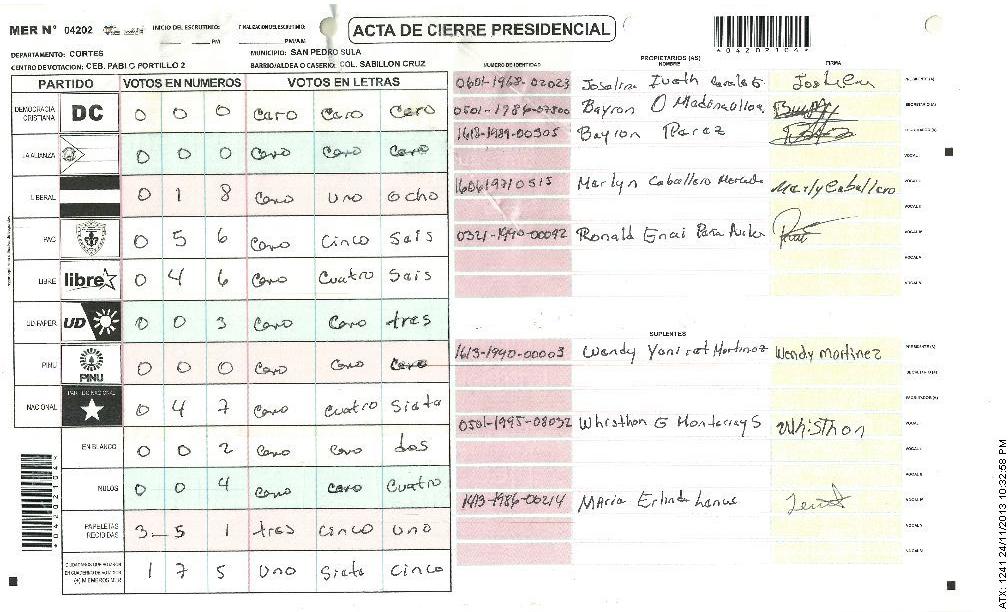 MER N° 04202
INICIO DEL ESCRUTINIO: PM
FINALIZACION DEL ESCRUTINIO: PM/AM
ACTA DE CIERRE PRESIDENCIAL
*04202104*
DEPARTAMENTO: CORTES
MUNICIPIO: SAN PEDRO SULA
CENTRO DE VOTACION: CEB. PABLO PORTILLO 2
BARRIO/ALDEA O CASERIO: COL. SABILLON CRUZ
PARTIDO VOTOS EN NUMEROS VOTOS EN LETRAS
DEMOCRACIA CRISTIANA DC 0 0 0 Cero Cero Cero
LA ALIANZA 0 0 0 Cero Cero Cero
LIBERAL 0 1 8 Cero Uno Ocho
PAC 0 5 6 Cero Cinco Seis
LIBRE libre 0 4 6 Cero Cuatro Seis
UD FAPER UD 0 0 3 Cero Cero tres
PINU PINU 0 0 0 Cero Cero Cero
NACIONAL PARTIDO NACIONAL 0 4 7 Cero Cuatro Siete
EN BLANCO 0 0 2 Cero Cero dos
NULOS 0 0 4 Cero Cero Cuatro
PAPELETAS RECIBIDAS 3 5 1 tres Cinco Uno
CIUDADANOS QUE VOTARON EN CUADERNO DE VOTACION (+) MIEMBROS MER 1 7 5 Uno Siete Cinco
PROPIETARIOS (AS)
NUMERO DE IDENTIDAD NOMBRE FIRMA
0601-1968-02023 Josalina
SECRETARIO(A)
0501-1986-07500 Bayron O
1618-1989-00305 Bayron Perez
VOCAL I
160619710515 Marlyn Caballero Mercado Marly Caballero
VOCAL II
0321-1990-00092 Ronald
VOCAL IV
VOCAL V
SUPLENTES
PRESIDENTE(A)
1613-1990-00003 Wendy Martinez Wendy martinez
SECRETARIO(A)
ESCRUTADOR(A)
VOCAL I
0501-1995-08032 Whisthon G Monterroy S Whisthon
VOCAL II
VOCAL III
1413-1986-00214 Maria Erlinda
VOCAL IV
VOCAL V
*04202104*
ATX: 1241 24/11/2013 10:32:58 PM